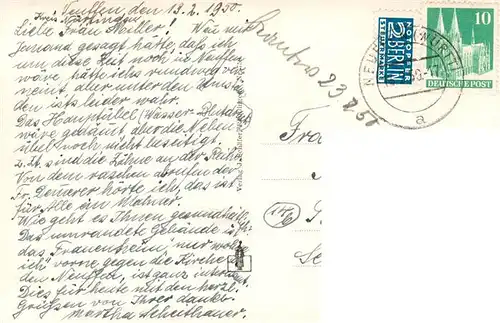 Neuffen, den 13.2.1950.
Kreis Nürtingen
Liebe Frau Müller! Wenn mir
Jemand gesagt hätte, daß ich
um diese Zeit noch in Neuffen
wäre, hätte ichs rundweg ver-
neint, aber unter den Umstän-
den ist leider wahr.
Das Hauptübel (Wasser-Blutdruck)
wäre gebannt, aber die Neben-
übel noch nicht beseitigt.
z. Zt. sind die Zähne an der Reihe.
Von dem raschen abrufen der
Fr. hörte ich, das ist
für Alle ein Mahner.
Wie geht es Ihnen gesundheitl.?
Das umrandete Gebäude ist
das Frauenheim, "nur wohne
ich" vorne gegen die Kirche
den Neuffen, ist ganz
Dies für heute mit den herzl.
Grüßen von Ihrer dankb.
Martha Scheithauer.
23
NOTOPFER
2 BERLIN
STEUERMARKE
10
DEUTSCHE POST
NEUFFEN
a
(14b)
Fra
S